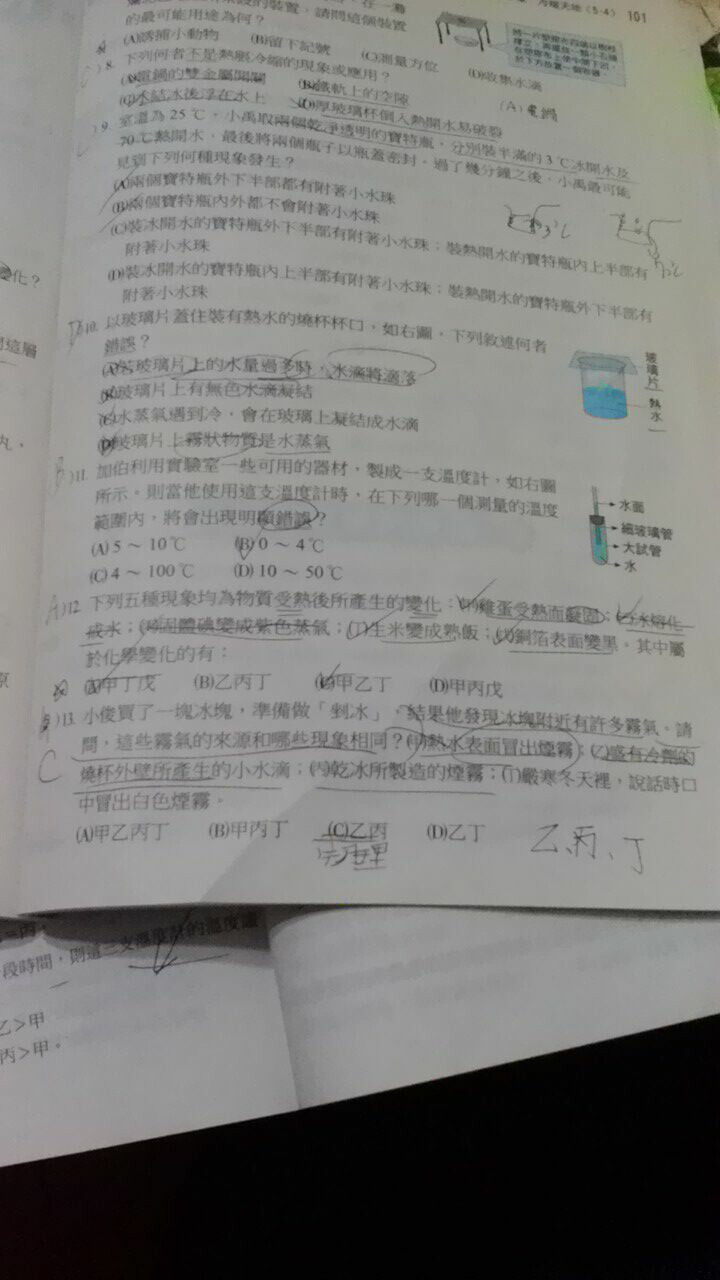 冷暖天地(5-4) 101
的裝置,請問這個裝置
的最可能用途為何?
(A)誘捕小動物 (B)留下記號 (C)測量方位 (D)收集水滴
)8. 下列何者不是熱脹冷縮的現象或應用?
(A)電鍋的雙金屬開關 (B)鐵軌上的空隙
(C)水結冰後浮在水上 (D)厚玻璃杯倒入熱開水易破裂
(A)電鍋
)9. 室溫為25℃,小禹取兩個乾淨透明的寶特瓶,分別裝半滿的3℃冰開水及
70℃熱開水,最後將兩個瓶子以瓶蓋密封。過了幾分鐘之後,小禹最可能
見到下列何種現象發生?
(A)兩個寶特瓶外下半部都有附著小水珠
(B)兩個寶特瓶內外都不會附著小水珠
(C)裝冰開水的寶特瓶外下半部有附著小水珠;裝熱開水的寶特瓶內上半部有
附著小水珠
(D)裝冰開水的寶特瓶內上半部有附著小水珠;裝熱開水的寶特瓶外下半部有
附著小水珠
)10. 以玻璃片蓋住裝有熱水的燒杯杯口,如右圖,下列敘述何者
錯誤?
(A)若玻璃片上的水量過多時,水滴將滴落
(B)玻璃片上有無色水滴凝結
(C)水蒸氣遇到冷,會在玻璃上凝結成水滴
(D)玻璃片上霧狀物質是水蒸氣
玻璃片
熱水
B)11. 加伯利用實驗室一些可用的器材,製成一支溫度計,如右圖
所示。則當他使用這支溫度計時,在下列哪一個測量的溫度
範圍內,將會出現明顯錯誤?
(A) 5～10℃ (B) 0～4℃
(C) 4～100℃ (D) 10～50℃
水面
細玻璃管
大試管
水
A)12. 下列五種現象均為物質受熱後所產生的變化:(甲)雞蛋受熱而凝固;(乙)冰熔化
成水;(丙)固體碘變成紫色蒸氣;(丁)生米變成熟飯;(戊)銅箔表面變黑。其中屬
於化學變化的有:
(A)甲丁戊 (B)乙丙丁 (C)甲乙丁 (D)甲丙戊
)13. 小俊買了一塊冰塊,準備做「剉冰」,結果他發現冰塊附近有許多霧氣。請
問,這些霧氣的來源和哪些現象相同?(甲)熱水表面冒出煙霧;(乙)盛有冷劑的
C 燒杯外壁所產生的小水滴;(丙)乾冰所製造的煙霧;(丁)嚴寒冬天裡,說話時口
中冒出白色煙霧。
(A)甲乙丙丁 (B)甲丙丁 (C)乙丙 (D)乙丁
乙、丙、丁
段時間,則這三支溫度計的溫度讀
乙>甲
丙>甲。